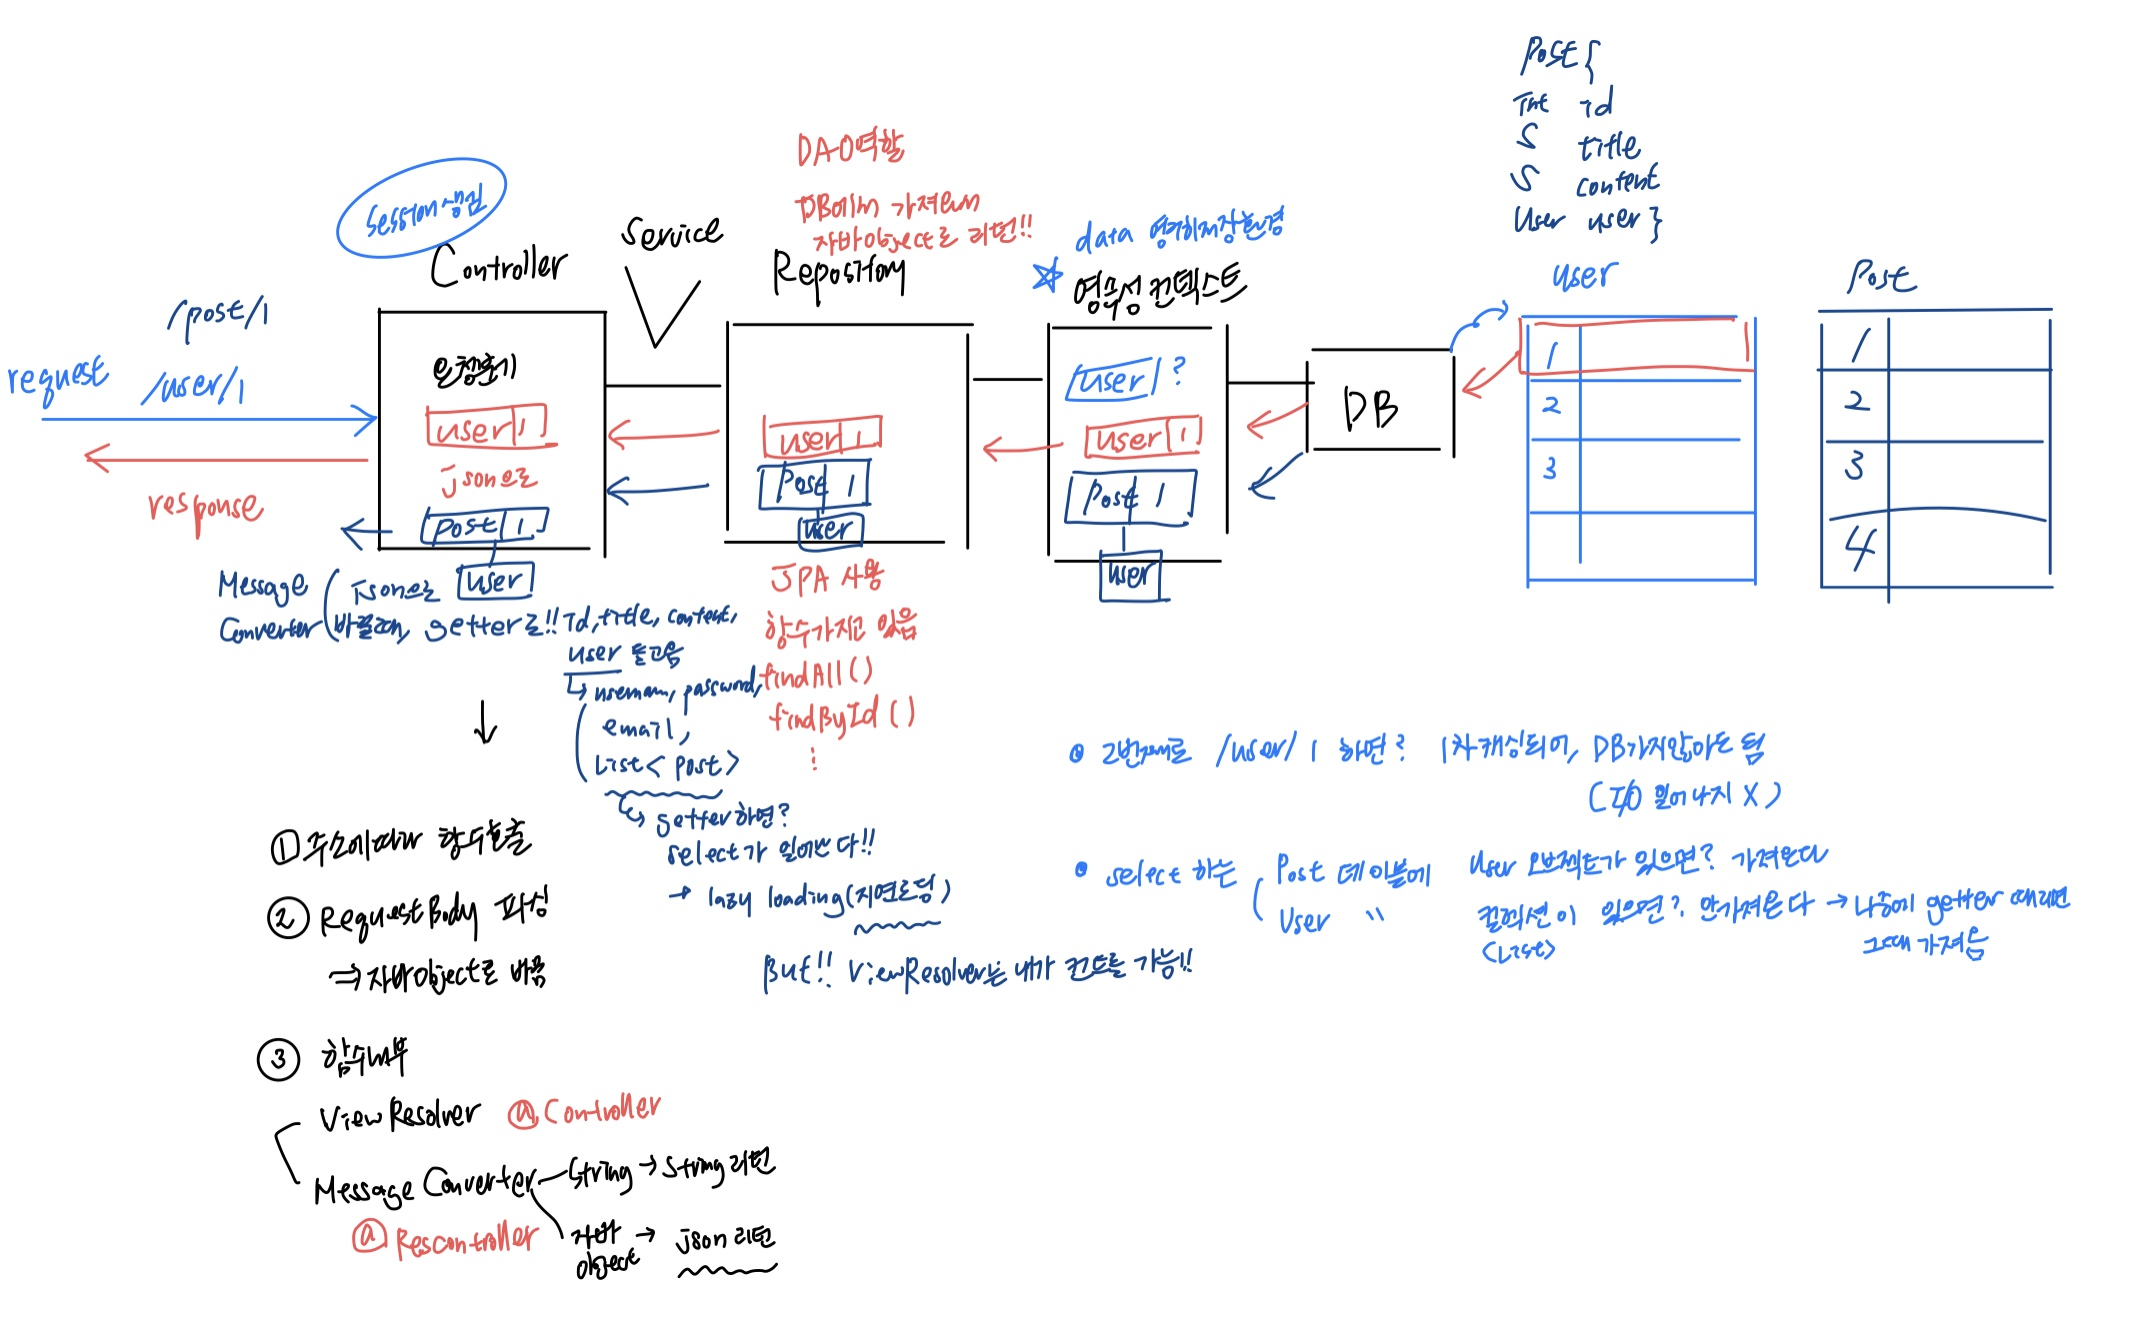 Post {
Int id
S title
S content
User user }
DAO역할
DB에서 가져와서
자바object로 리턴!!
session생김
Controller
Service
Repository
data 영구히저장환경
☆ 영속성 컨텍스트
user
Post
/post/1
request
/user/1
response
요청혼기
user 1
json으로
post 1
user
user 1
Post 1
user
user ?
user 1
Post 1
user
DB
1
2
3
1
2
3
4
Message Converter
Json으로
바꿀때, getter로!! Id, title, content,
user 들고옴
↳ usernam, password,
email,
List<Post>
↳ getter하면?
select가 일어난다!!
→ lazy loading (지연로딩)
But!! ViewResolver는 내가 컨트롤 가능!!
JPA 사용
함수가지고 있음
findAll()
findById()
⋮
↓
① 주소에따라 함수호출
② RequestBody 파싱
⇒ 자바object로 바꿈
③ 함수내부
ViewResolver @Controller
Message Converter
String → String 리턴
@Rescontroller
자바object → json 리턴
• 2번째로 /user/1 하면? 1차캐싱되어, DB가지않아도 됨
(I/O 일어나지 X)
• select 하는 Post 테이블에 User 오브젝트가 있으면? 가져온다
User 〃 컬렉션이 있으면? 안가져온다 → 나중에 getter 때리면
<List> 그때 가져옴